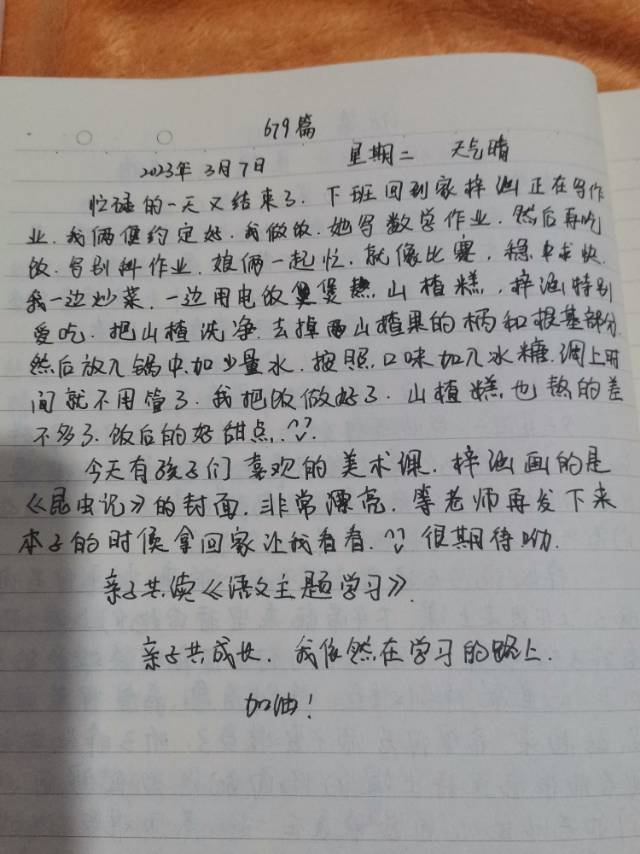 679篇
2023年3月7日 星期二 天气晴
忙碌的一天又结束了.下班回到家梓涵正在写作
业.我俩便约定好.我做饭.她写数学作业.然后再吃
饭.写别科作业.娘俩一起忙.就像比赛.稳中求快.
我一边炒菜.一边用电饭煲煲熬山楂糕.梓涵特别
爱吃.把山楂洗净.去掉山楂果的柄和根基部分.
然后放入锅中.加少量水.按照口味加入冰糖.调上时
间就不用管了.我把饭做好了.山楂糕也熬的差
不多了.饭后的好甜点.
今天有孩子们喜欢的美术课.梓涵画的是
《昆虫记》的封面.非常漂亮.等老师再发下来
本子的时候拿回家让我看看.很期待呦.
亲子共读《语文主题学习》.
亲子共成长.我依然在学习的路上.
加油!